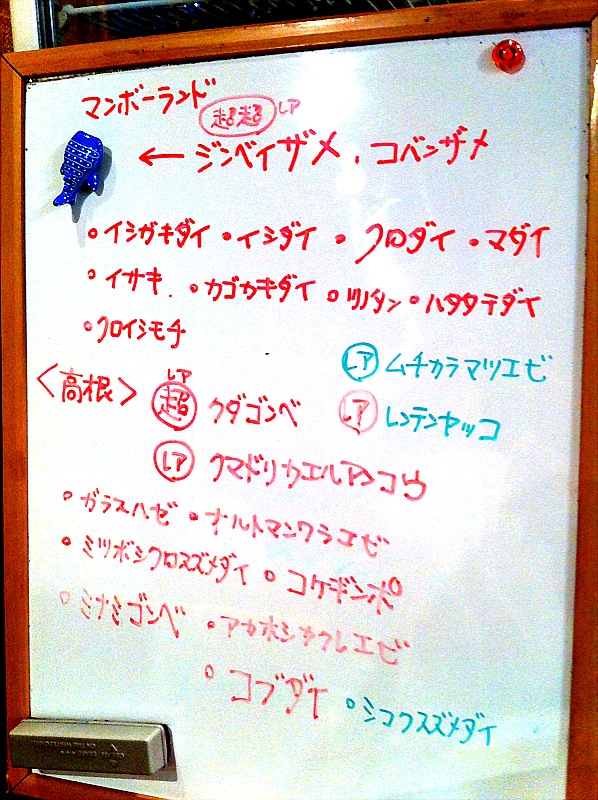 マンボーランド
超超 レア
← ジンベイザメ、コバンザメ
・イシガキダイ ・イシダイ ・クロダイ ・マダイ
・イサキ. ・カゴカキダイ ・ツノダシ ・ハタタテダイ
・クロイシモチ
レア ムチカラマツエビ
<高根> 超レア クダゴンベ レア レンテンヤッコ
レア クマドリカエルアンコウ
・ガラスハゼ ・オルトマンワラエビ
・ミツボシクロスズメダイ ・コケギンポ
・ミナミゴンベ ・アカホシカクレエビ
・コブダイ ・シコクスズメダイ